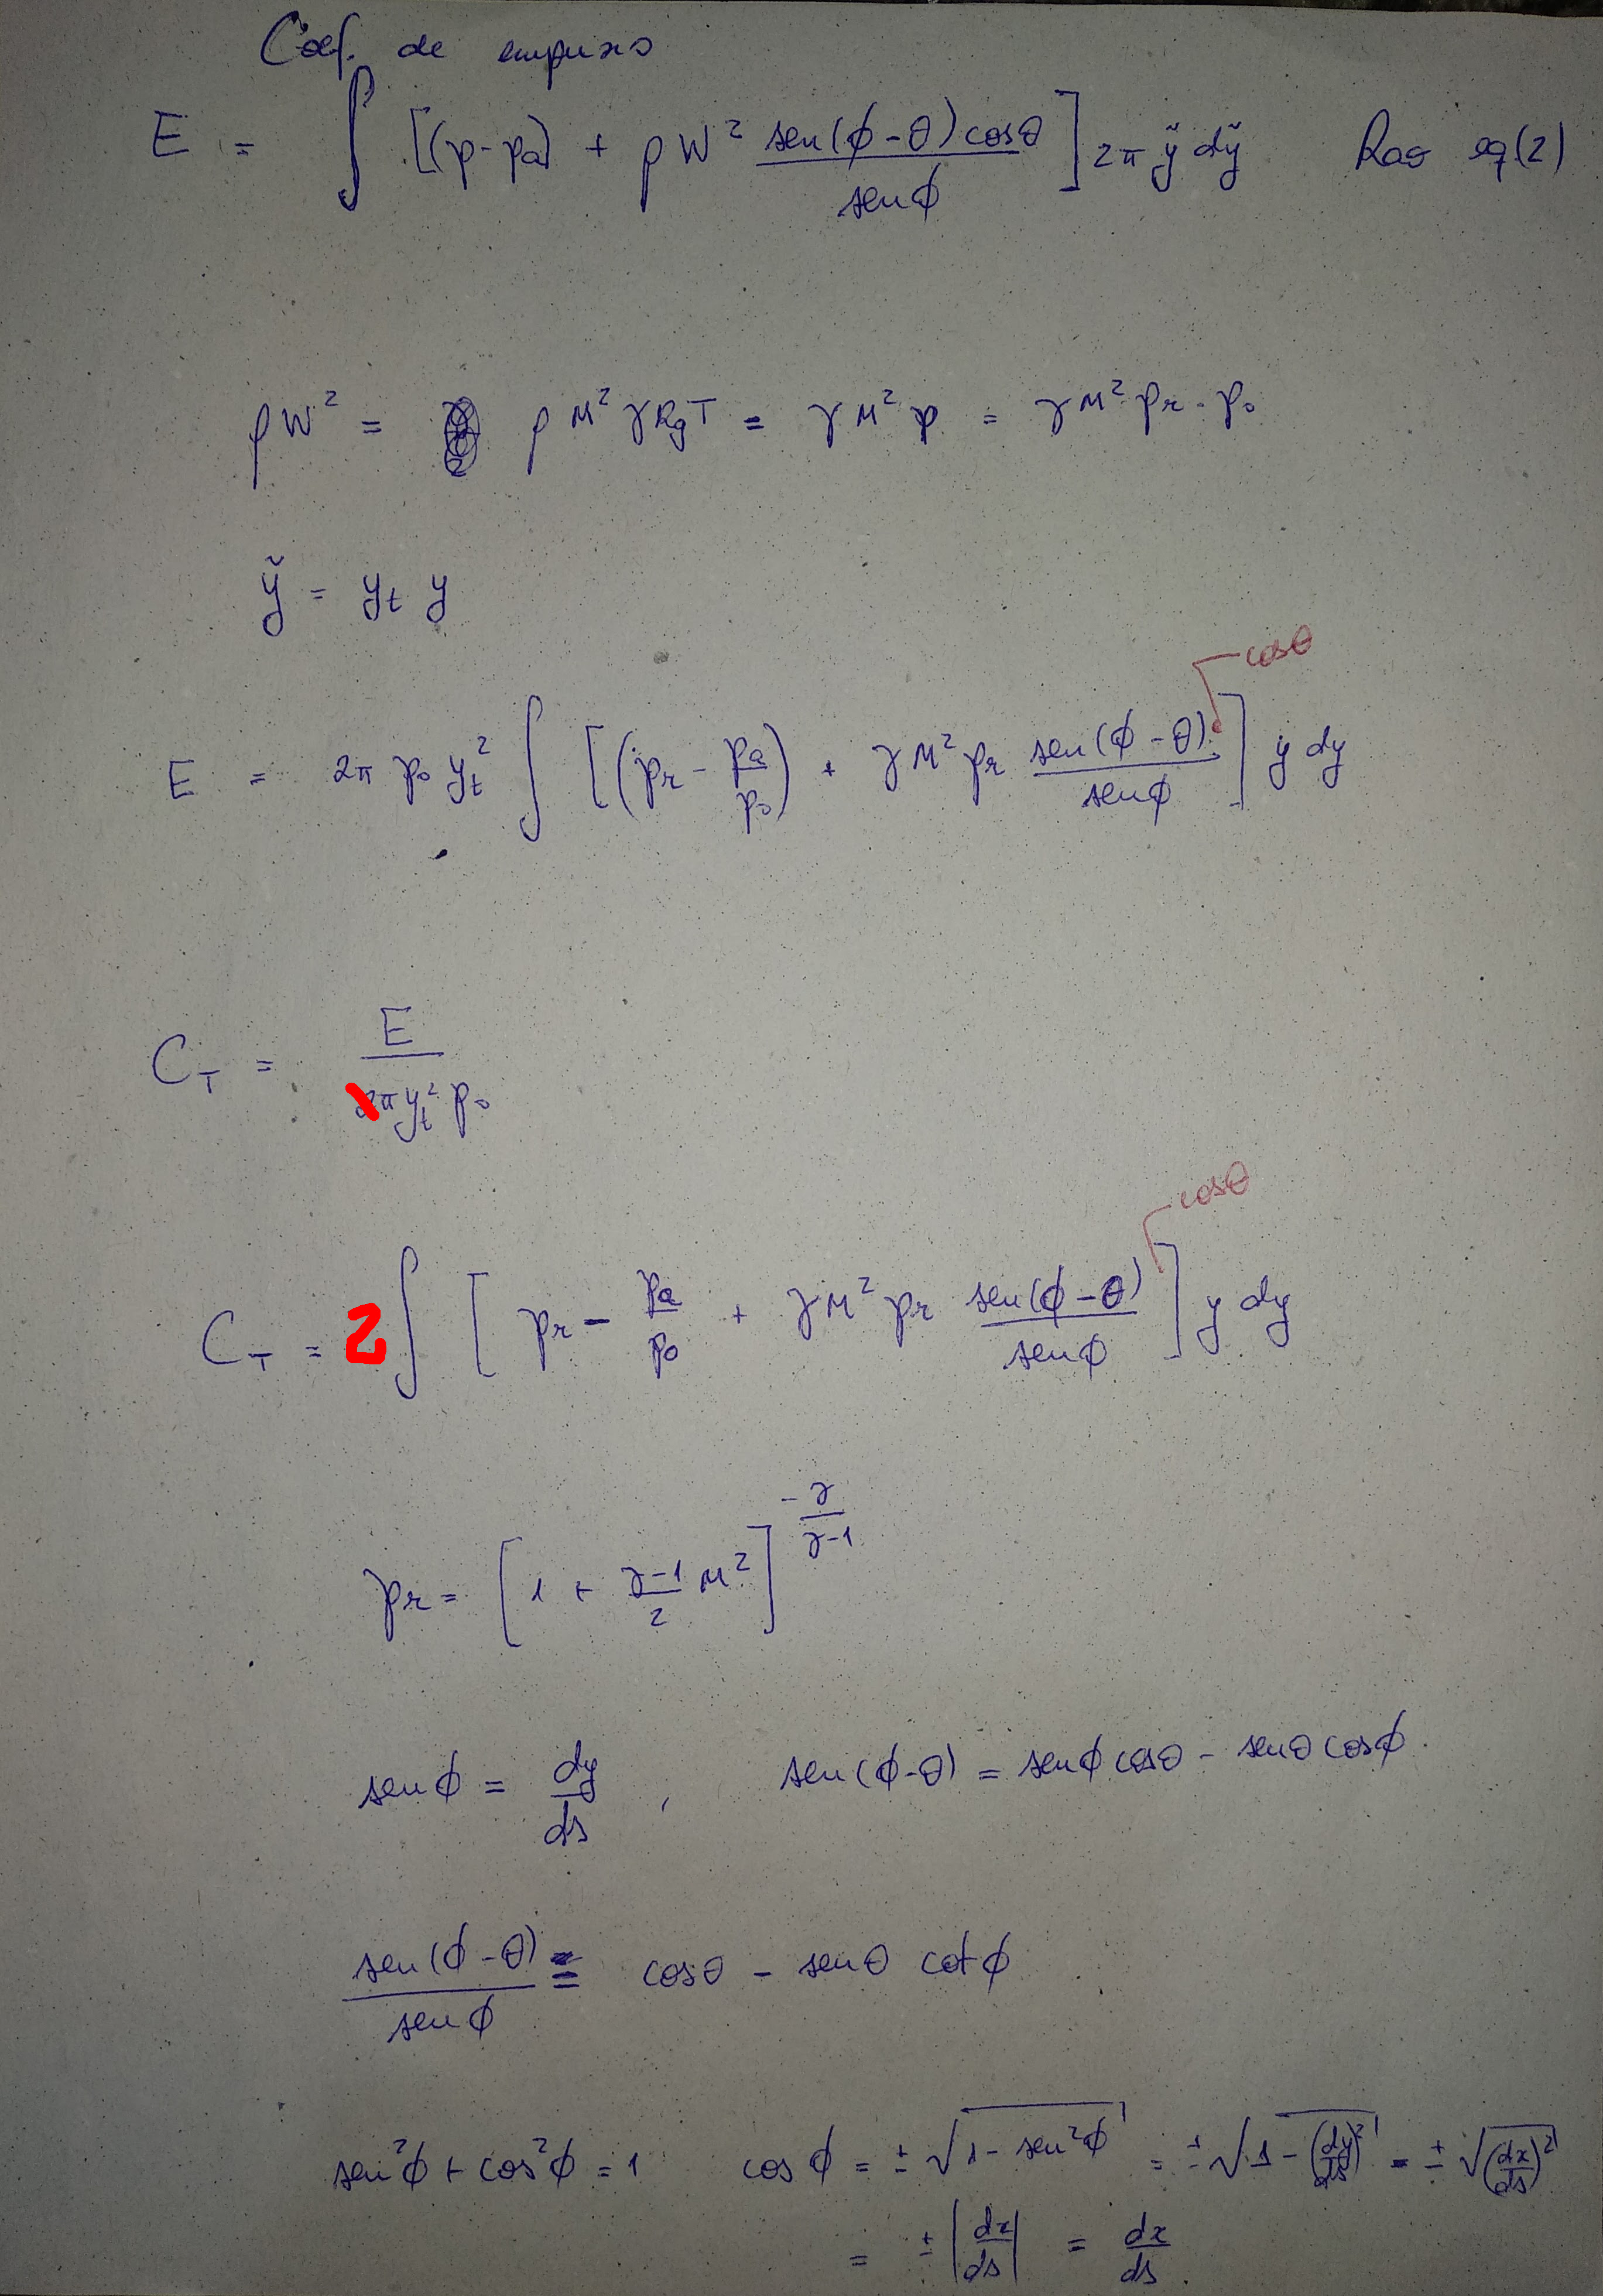 Coef. de empuxo
E = ∫ [(p-pa) + ρW² sen(ϕ-θ)cosθ / senϕ] 2π ỹ dỹ Rao eq(2)
ρW² = ρ M² γ Rg T = γ M² p = γ M² pr · p₀
ỹ = yt y
cosθ
E = 2π p₀ yt² ∫ [(pr - pa/p₀) + γ M² pr sen(ϕ-θ) / senϕ] y dy
CT = E / 2π yt² p₀
cosθ
CT = 2 ∫ [pr - pa/p₀ + γ M² pr sen(ϕ-θ) / senϕ] y dy
pr = [1 + γ-1/2 M²]^(-γ/γ-1)
senϕ = dy/ds , sen(ϕ-θ) = senϕ cosθ - senθ cosϕ.
sen(ϕ-θ) / senϕ = cosθ - senθ cotϕ
sen²ϕ + cos²ϕ = 1 cosϕ = ± √(1 - sen²ϕ) = ± √(1 - (dy/ds)²) = ± √((dx/ds)²)
= ± |dx/ds| = dx/ds.